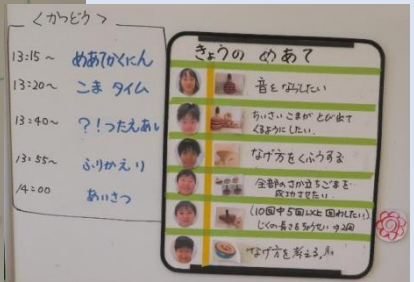 ＜かつどう＞
13:15～ めあてかくにん
13:20～ こま タイム
13:40～ ?!つたえあい
13:55～ ふりかえり
14:00 あいさつ
きょうの めあて
音をならしたい
ちいさいこまが とび出て
くるようにしたい.
なげ方をくふうする
全部のさか立ちごまを
成功させたい.
(10回中5回以上 回わしたい)
じくの長さをちょうせい →2回
なげ方を考える.